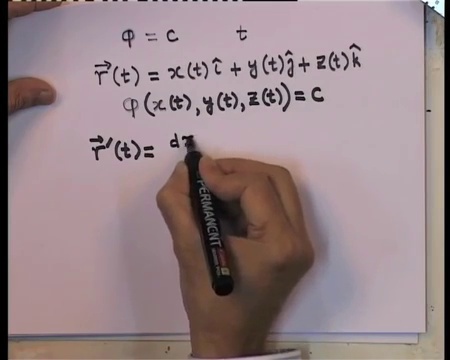 φ = c t
r⃗(t) = x(t)î + y(t)ĵ + z(t)k̂
φ(x(t), y(t), z(t)) = c
r⃗'(t) = dx
PERMANENT